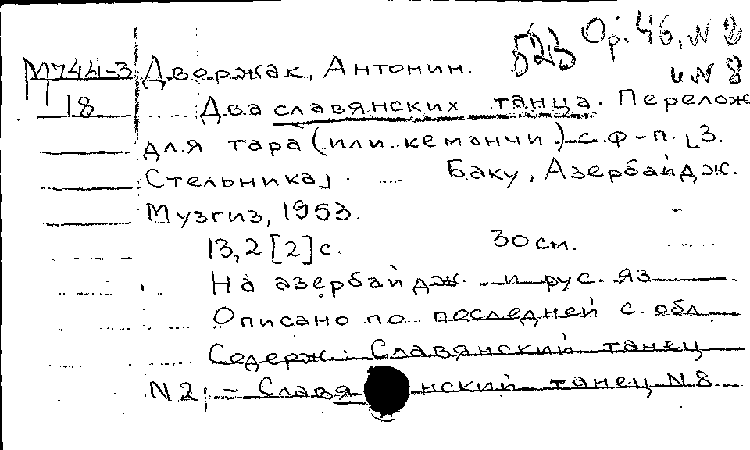 523 Op. 46, N 2
и N 8
М744-3 Двержак, Антонин.
18 Два славянских танца. Перелож
для тара (или кеманчи) с ф-п. [З.
Стельника]. Баку, Азербайдж.
Музгиз, 1953.
13,2 [2] с. 30 см.
На азербайдж. и рус. яз
Описано по последней с. обл
Содерж: Славянский танец
N 2; - Славянский танец N 8